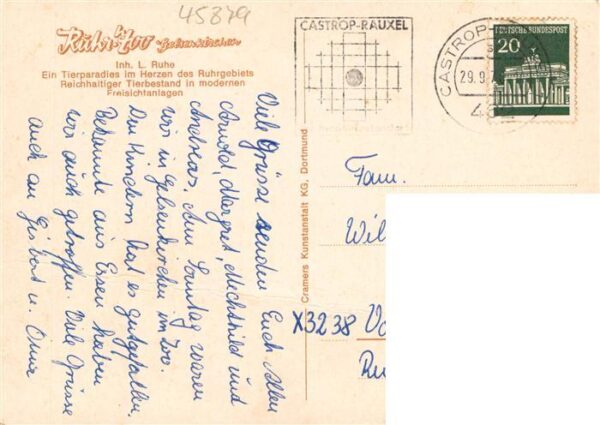 45879
Ruhr-Zoo Gelsenkirchen
Inh. L. Ruhe
Ein Tierparadies im Herzen des Ruhrgebiets
Reichhaltiger Tierbestand in modernen
Freisichtanlagen
Viele Grüsse senden Euch Allen
Arnold, Margret, Mechthild und
Andreas. Am Sonntag waren
wir in Gelsenkirchen im Zoo.
Den Kindern hat es gutgefallen.
Bekannte aus Essen haben
wir auch getroffen. Viele Grüsse
auch an Gisbert u. Oma
Cramers Kunstanstalt KG, Dortmund
CASTROP-RAUXEL
CASTROP-
29.9.7
DEUTSCHE BUNDESPOST
20
Fam.
Wil
X3238